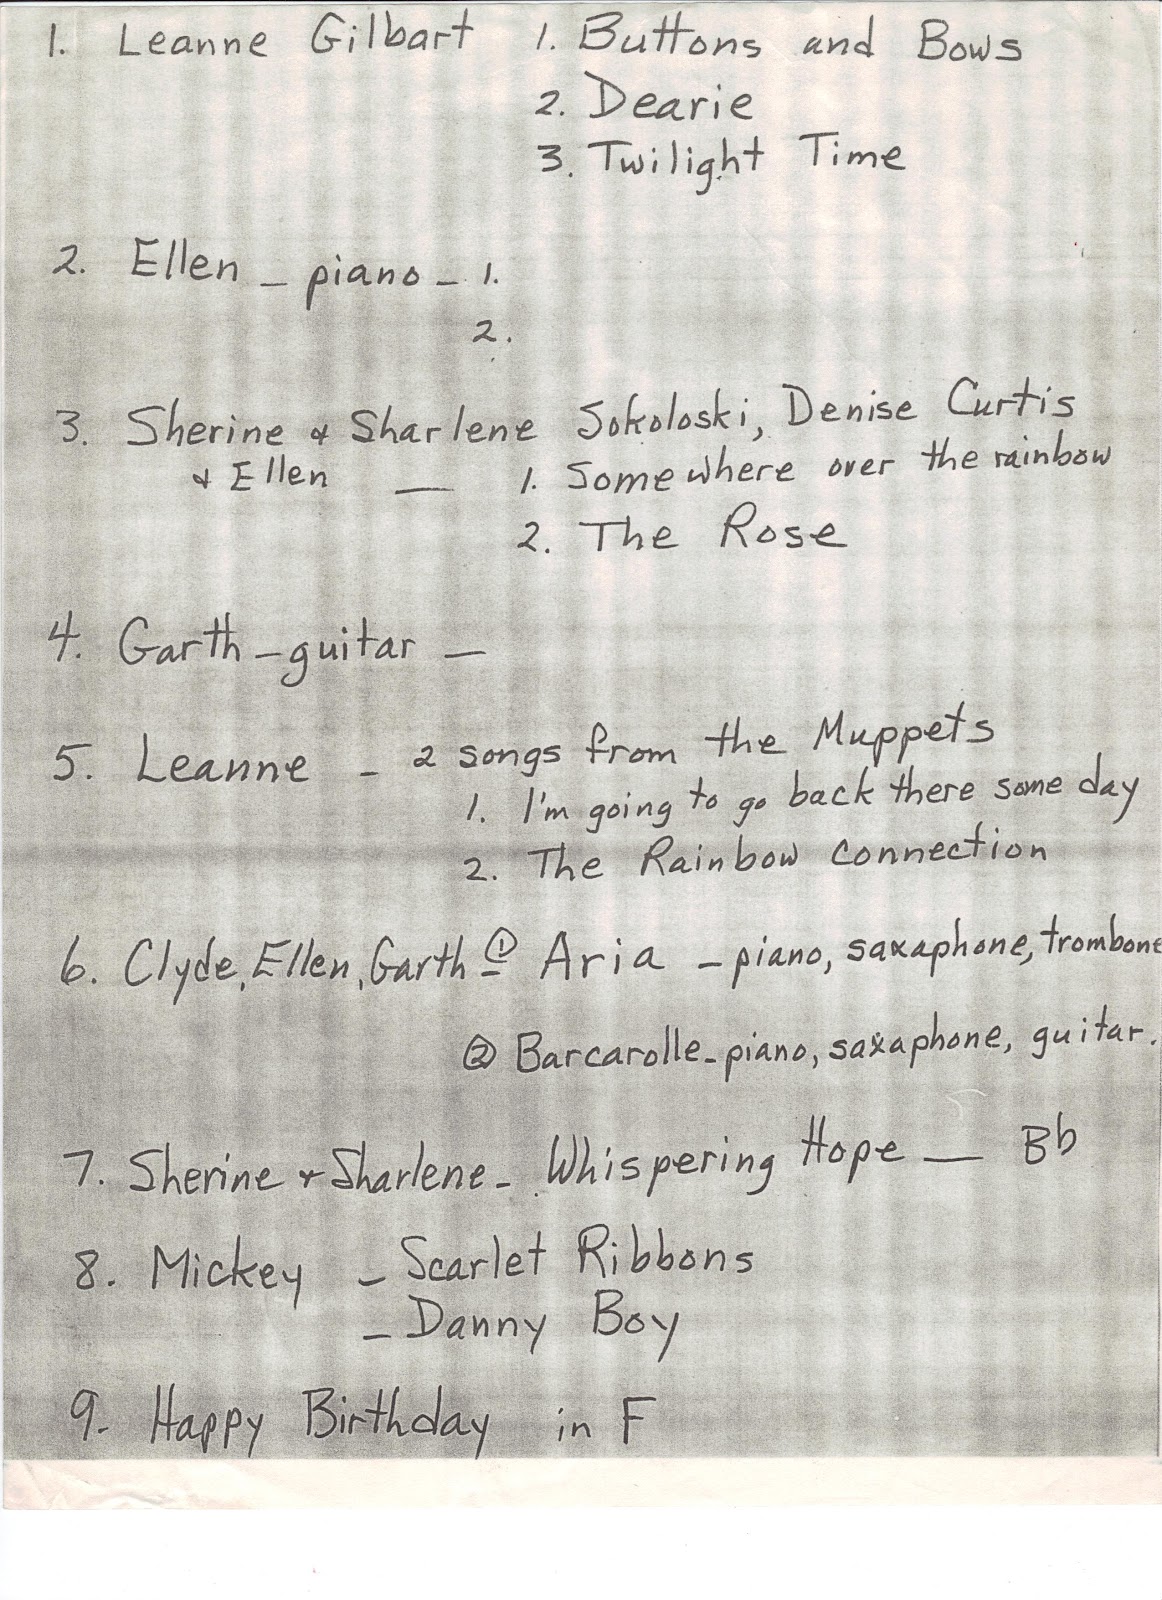 1. Leanne Gilbart 1. Buttons and Bows
2. Dearie
3. Twilight Time
2. Ellen - piano - 1.
2.
3. Sherine & Sharlene Sokoloski, Denise Curtis
& Ellen — 1. Somewhere over the rainbow
2. The Rose
4. Garth - guitar —
5. Leanne - 2 songs from the Muppets
1. I'm going to go back there some day
2. The Rainbow connection
6. Clyde, Ellen, Garth ① Aria - piano, saxaphone, trombone
② Barcarolle - piano, saxaphone, guitar.
7. Sherine & Sharlene - Whispering Hope — Bb
8. Mickey - Scarlet Ribbons
- Danny Boy
9. Happy Birthday in F